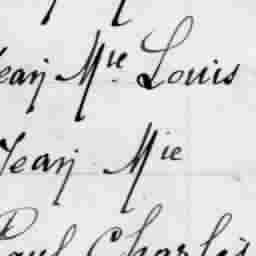 Jean Mie Louis
Jean Mie
Paul Charles